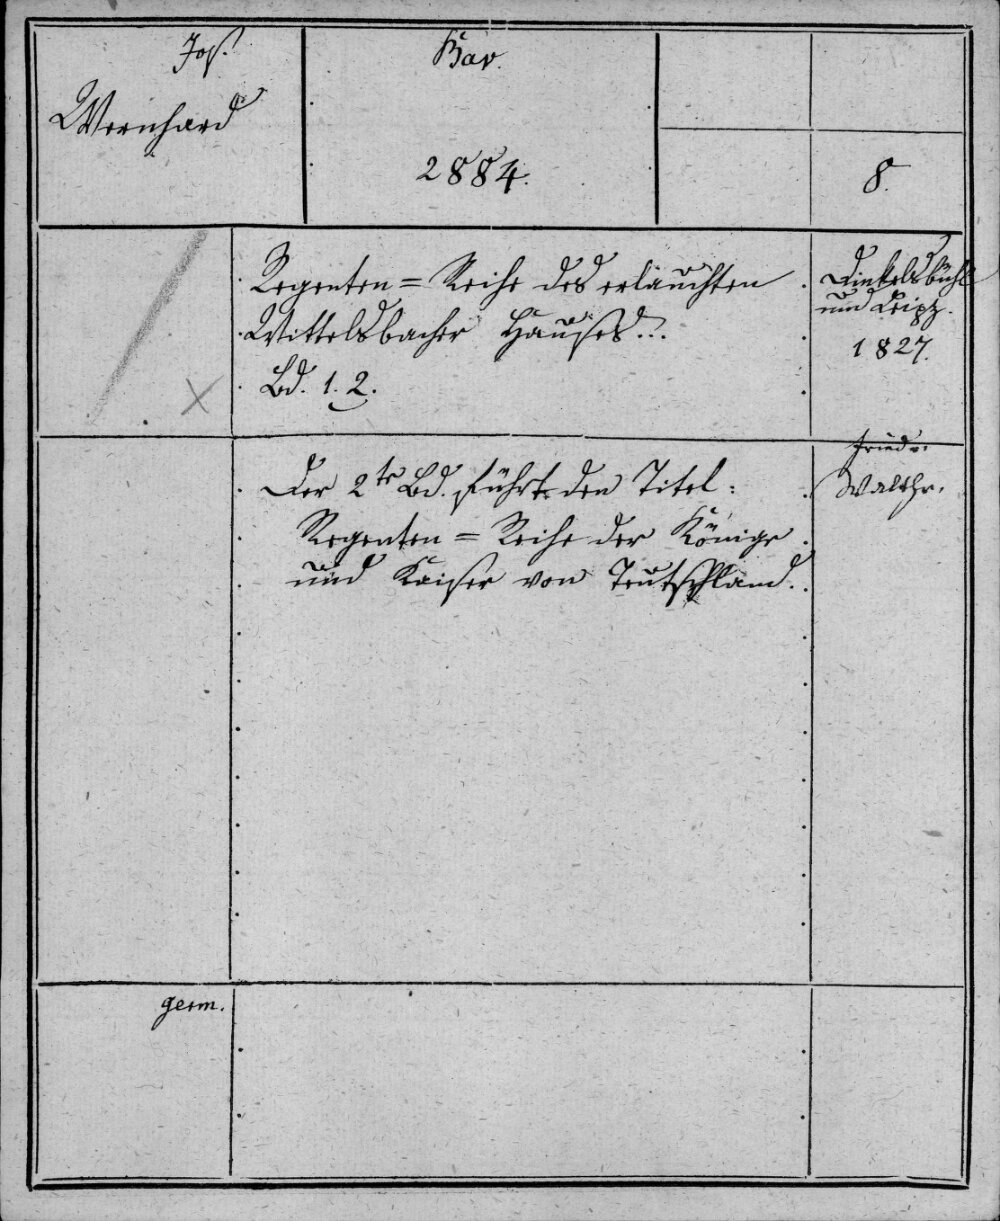 Jos.
Wernhard
Bav.
2884.
8.
Regenten = Reihe des erlauchten
Wittelsbacher Hauses...
Bd. 1. 2.
Dinkelsbühl
und Leipz.
1827.
Der 2te Bd. führt den Titel:
Regenten = Reihe der Könige
und Kaiser von Teutschland.
Friedr.
Walthr.
germ.